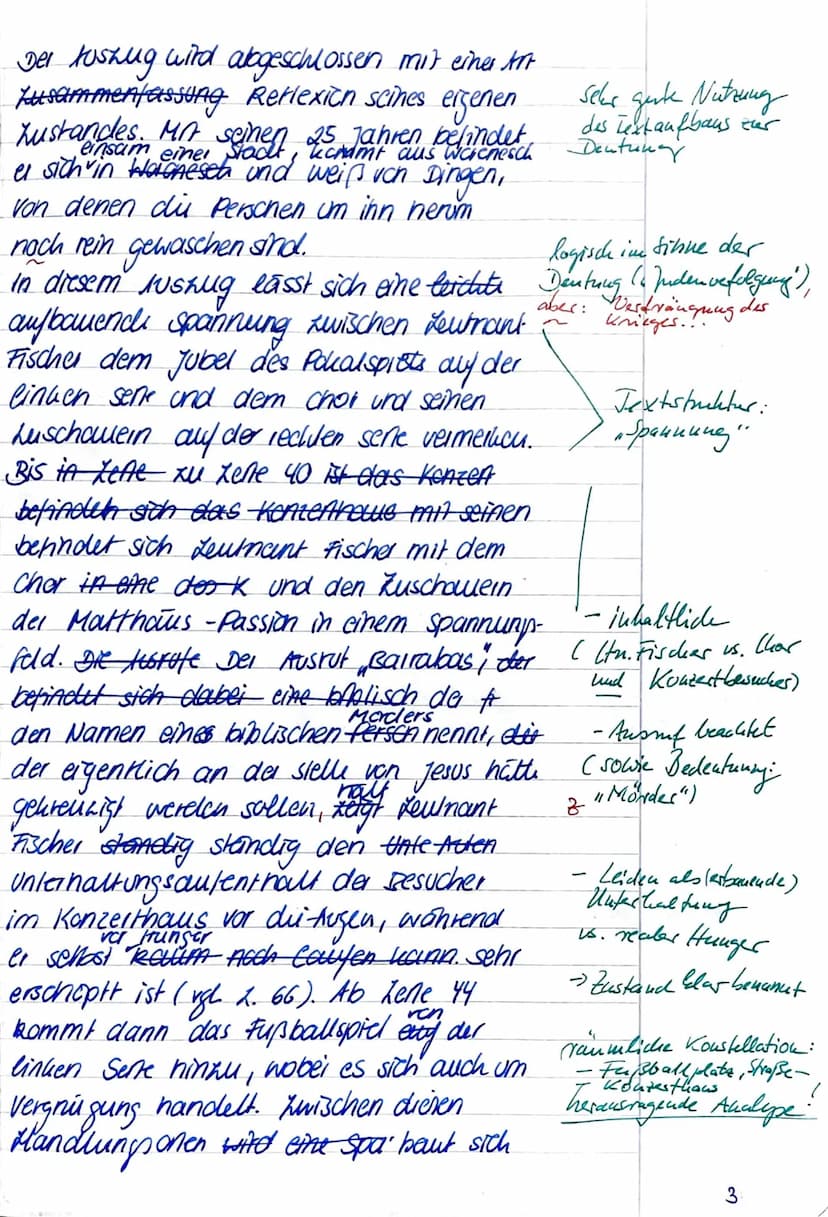 Der Auszug wird abgeschlossen mit einer Art
Zusammenfassung Reflexion seines eigenen
Zustandes. Mit seinen 25 Jahren befindet
einsam einer Stadt, kommt aus Woronesch
er sich in Woronesch und weiß von Dingen,
von denen die Personen um ihn herum
noch rein gewaschen sind.
In diesem Auszug lässt sich eine leichte
aufbauende Spannung zwischen Leutnant
Fischer dem Jubel des Pokalspiels auf der
linken Seite und dem Chor und seinen
Zuschauern auf der rechten Seite vermerken.
Bis in Zeile zu Zeile 40 ist das Konzert
befindet sich das Konzerthaus mit seinen
befindet sich Leutnant Fischer mit dem
Chor in eine des K und den Zuschauern
der Matthäus-Passion in einem Spannungs-
feld. Die Ausrufe Der Ausruf „Barrabas", der
befindet sich dabei eine biblisch de
Mörders
den Namen eines biblischen Person nennt, die
der eigentlich an der Stelle von Jesus hätte
hält
gekreuzigt werden sollen, zeigt Leutnant
Fischer ständig ständig den Unte Auten
Unterhaltungsaufenthalt der Besucher
im Konzerthaus vor die Augen, während
vor Hunger
er selbst kaum noch laufen kann. sehr
erschöpft ist (vgl. Z. 66). Ab Zeile 44
von
kommt dann das Fußballspiel auf der
linken Seite hinzu, wobei es sich auch um
Vergnügung handelt. Zwischen diesen
Handlungsorten wird eine Spa baut sich
sehr gute Nutzung
des Textaufbaus zur
Deutung
logisch im Sinne der
Deutung („Judenverfolgung"),
aber: Verdrängung des
Krieges...
Textstruktur:
„Spannung"
- inhaltlich
(Ltn. Fischer vs. Chor
und Konzertbesucher)
- Ausruf beachtet
(sowie Bedeutung:
„Mörder")
- Leiden als (erbauende)
Unterhaltung
vs. realer Hunger
→ Zustand klar benannt
räumliche Konstellation:
- Fußballplatz, Straße -
Konzerthaus
herausragende Analyse!
3